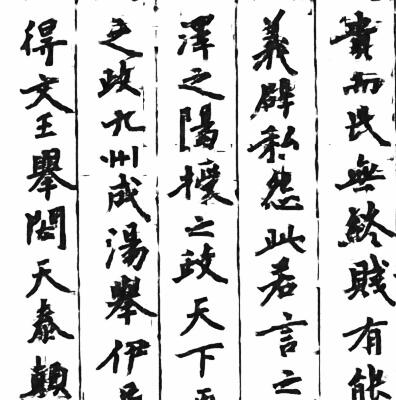 貴而民無終賤有能
義辟私怨此若言之
澤之陽授之政天下平
之政九州成湯舉伊
得文王舉閎夭泰顛